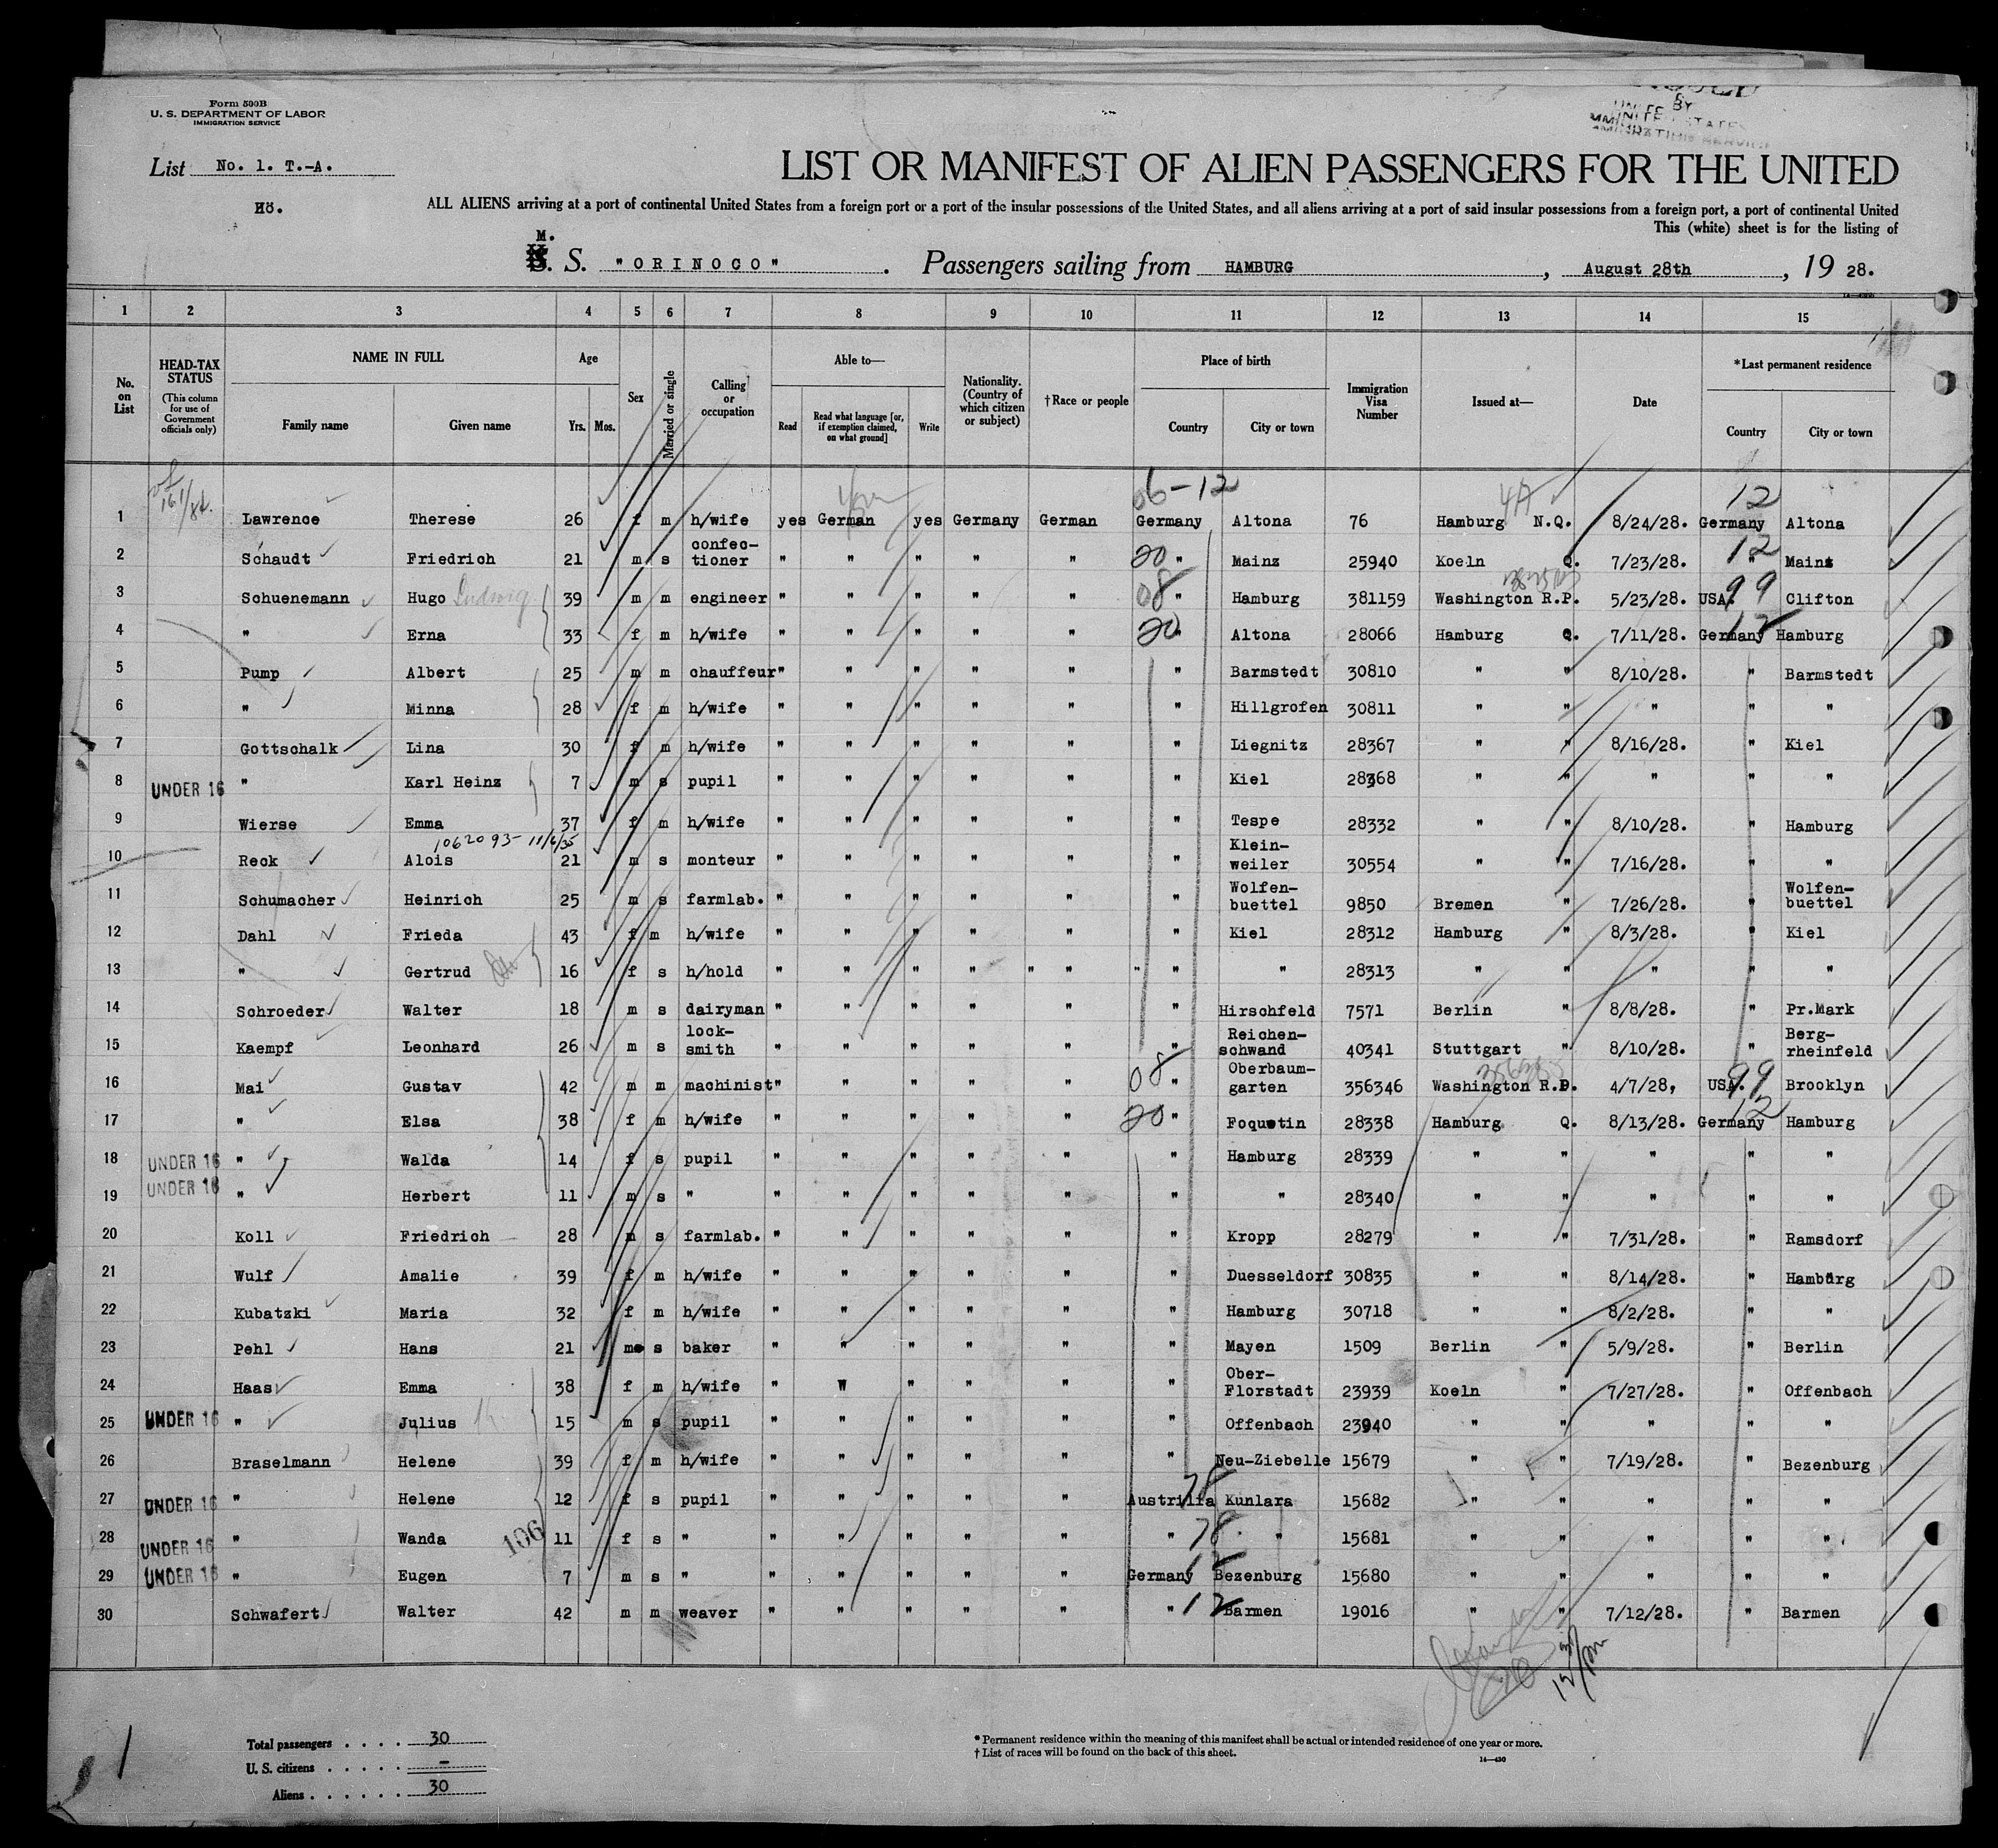 Form 500B
U. S. DEPARTMENT OF LABOR
IMMIGRATION SERVICE
BY
List No. 1. T.-A.
LIST OR MANIFEST OF ALIEN PASSENGERS FOR THE UNITED
Hö.
ALL ALIENS arriving at a port of continental United States from a foreign port or a port of the insular possessions of the United States, and all aliens arriving at a port of said insular possessions from a foreign port, a port of continental United
This (white) sheet is for the listing of
M.
S. S. "ORINOCO". Passengers sailing from HAMBURG, August 28th, 19 28.
1 2 3 4 5 6 7 8 9 10 11 12 13 14 15
No. on List
HEAD-TAX STATUS (This column for use of Government officials only)
NAME IN FULL Family name Given name
Age Yrs. Mos.
Sex
Married or single
Calling or occupation
Able to— Read Read what language [or, if exemption claimed, on what ground] Write
Nationality. (Country of which citizen or subject)
†Race or people
Place of birth Country City or town
Immigration Visa Number
Issued at—
Date
*Last permanent residence Country City or town
06-12 4A 12
1 Lawrence Therese 26 f m h/wife yes German yes Germany German Germany Altona 76 Hamburg N.Q. 8/24/28. Germany Altona
2 Schaudt Friedrich 21 m s confec-tioner " " " " " 20 " Mainz 25940 Koeln Q. 7/23/28. 12 " Mainz
3 Schuenemann Hugo Ludwig 39 m m engineer " " " " " 08 " Hamburg 381159 Washington R.P. 5/23/28. USA. 99 Clifton
4 " Erna 33 f m h/wife " " " " " 20 " Altona 28066 Hamburg Q. 7/11/28. Germany 12 Hamburg
5 Pump Albert 25 m m chauffeur " " " " " " Barmstedt 30810 " " 8/10/28. " Barmstedt
6 " Minna 28 f m h/wife " " " " " " Hillgrofen 30811 " " " " "
7 Gottschalk Lina 30 f m h/wife " " " " " " Liegnitz 28367 " " 8/16/28. " Kiel
8 UNDER 16 " Karl Heinz 7 m s pupil " " " " " " Kiel 28368 " " " " "
9 Wierse Emma 37 f m h/wife " " " " " " Tespe 28332 " " 8/10/28. " Hamburg
1062093- 11/6/35
10 Reck Alois 21 m s monteur " " " " " " Klein-weiler 30554 " " 7/16/28. " "
11 Schumacher Heinrich 25 m s farmlab. " " " " " " Wolfen-buettel 9850 Bremen " 7/26/28. " Wolfen-buettel
12 Dahl Frieda 43 f m h/wife " " " " " " Kiel 28312 Hamburg " 8/3/28. " Kiel
13 " Gertrud 16 f s h/hold " " " " " " " " " 28313 " " " " "
14 Schroeder Walter 18 m s dairyman " " " " " " Hirschfeld 7571 Berlin " 8/8/28. " Pr.Mark
15 Kaempf Leonhard 26 m s lock-smith " " " " " " Reichen-schwand 40341 Stuttgart " 8/10/28. " Berg-rheinfeld
16 Mai Gustav 42 m m machinist " " " " " 08 " Oberbaum-garten 356346 Washington R.P. 4/7/28, USA. 99 Brooklyn
17 " Elsa 38 f m h/wife " " " " " 20 " Foquetin 28338 Hamburg Q. 8/13/28. Germany 12 Hamburg
18 UNDER 16 " Walda 14 f s pupil " " " " " " Hamburg 28339 " " " " "
19 UNDER 16 " Herbert 11 m s " " " " " " " " 28340 " " " " "
20 Koll Friedrich 28 m s farmlab. " " " " " " Kropp 28279 " " 7/31/28. " Ramsdorf
21 Wulf Amalie 39 f m h/wife " " " " " " Duesseldorf 30835 " " 8/14/28. " Hamburg
22 Kubatzki Maria 32 f m h/wife " " " " " " Hamburg 30718 " " 8/2/28. " "
23 Pehl Hans 21 m s baker " " " " " " Mayen 1509 Berlin " 5/9/28. " Berlin
24 Haas Emma 38 f m h/wife " W " " " " Ober-Florstadt 23939 Koeln " 7/27/28. " Offenbach
25 UNDER 16 " Julius 15 m s pupil " " " " " " Offenbach 23940 " " " " "
26 Braselmann Helene 39 f m h/wife " " " " " " Neu-Ziebelle 15679 " " 7/19/28. " Bezenburg
27 UNDER 16 " Helene 12 f s pupil " " " " " Austrilia 78 Kunlara 15682 " " " " "
28 UNDER 16 " Wanda 106 11 f s " " " " " " " 78. " 15681 " " " " "
29 UNDER 16 " Eugen 7 m s " " " " " " Germany 12 Bezenburg 15680 " " " " "
30 Schwafert Walter 42 m m weaver " " " " " " 12 Barmen 19016 " " 7/12/28. " Barmen
Total passengers . . . . 30
U. S. citizens . . . . . –
Aliens . . . . . . 30
* Permanent residence within the meaning of this manifest shall be actual or intended residence of one year or more.
† List of races will be found on the back of this sheet.
14—430